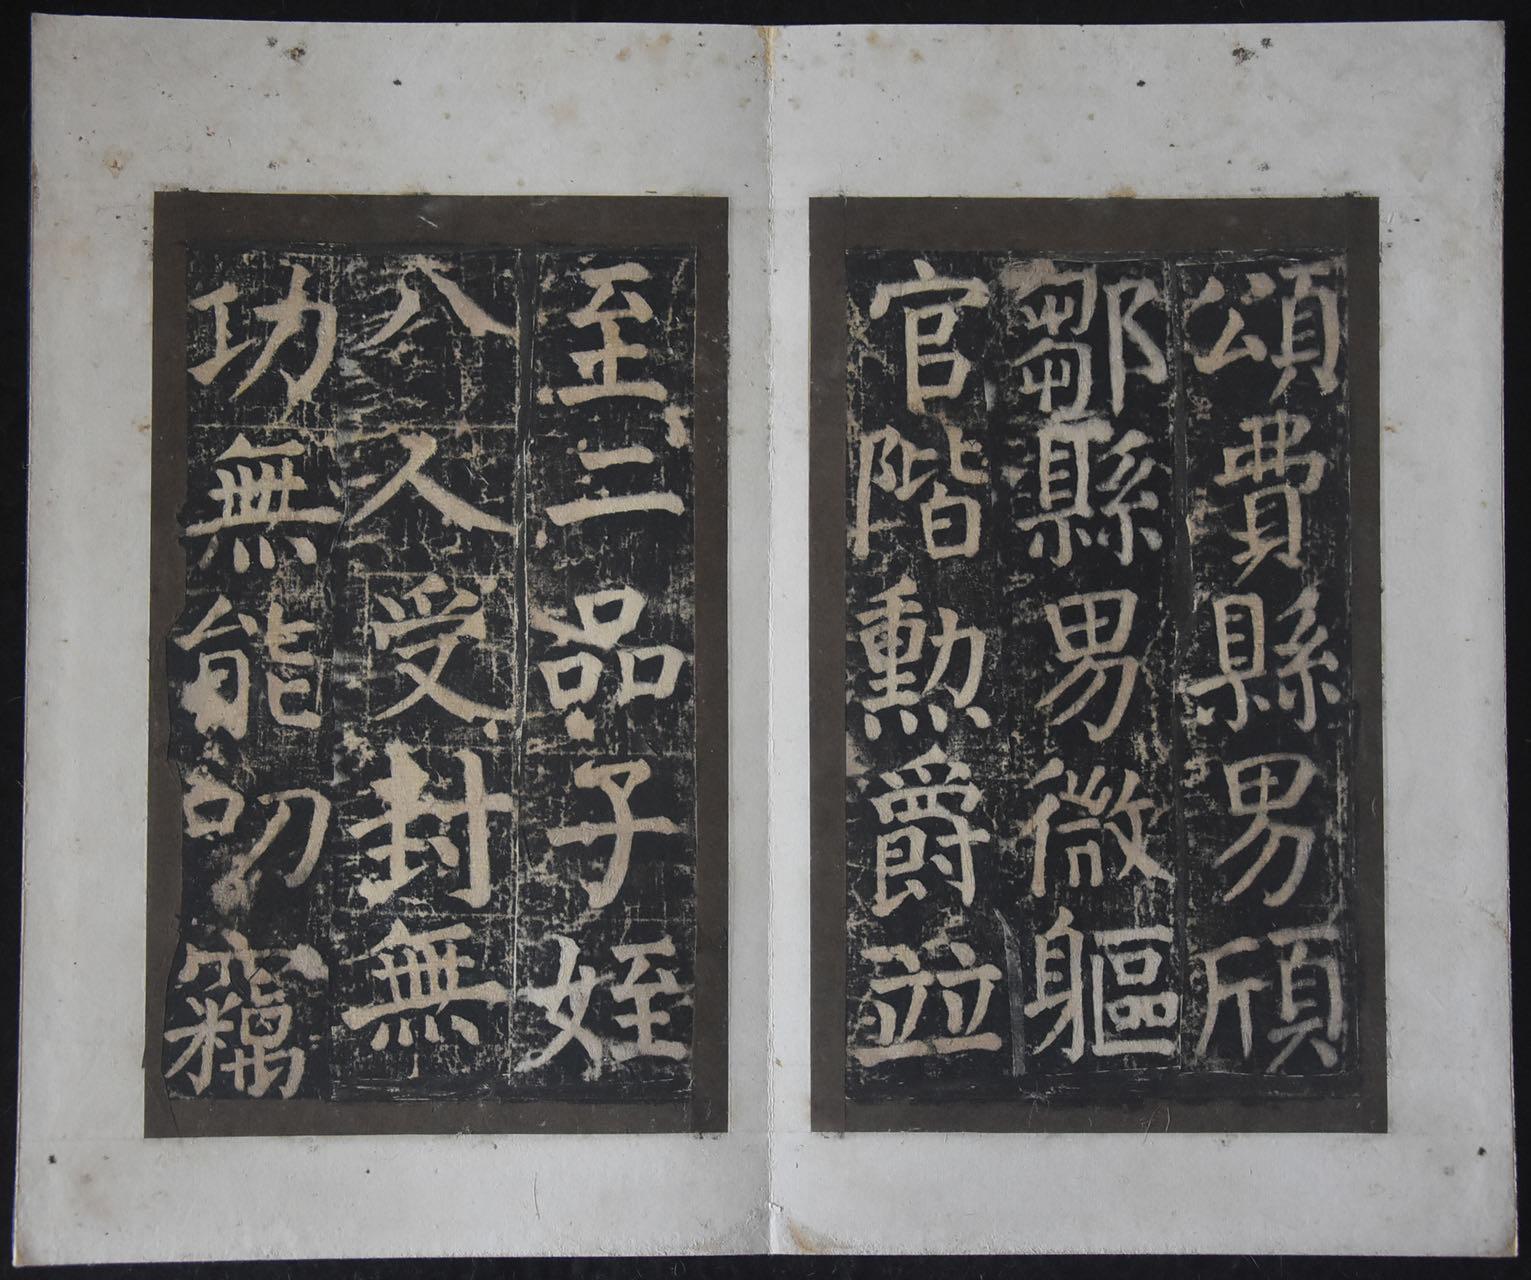 頌費縣男頎
鄒縣男微軀
官階勳爵竝
至二品子姪
八人受封無
功無能叨竊